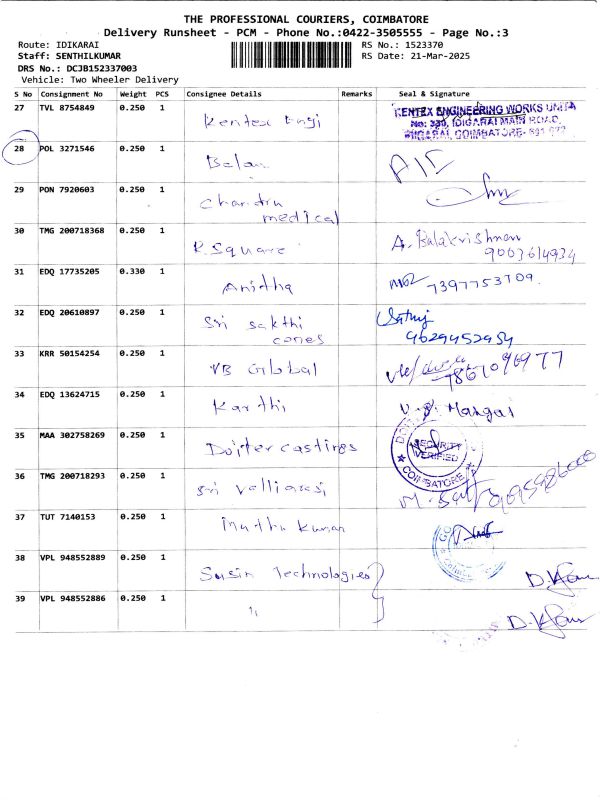 THE PROFESSIONAL COURIERS, COIMBATORE
Delivery Runsheet - PCM - Phone No.:0422-3505555 - Page No.:3
Route: IDIKARAI RS No.: 1523370
Staff: SENTHILKUMAR RS Date: 21-Mar-2025
DRS No.: DCJB152337003
Vehicle: Two Wheeler Delivery
S No Consignment No Weight PCS Consignee Details Remarks Seal & Signature
27 TVL 8754849 0.250 1 Kentex Engi KENTEX ENGINEERING WORKS UNIT
No: 330, IDIGARAI MAIN ROAD,
IDIGARAI, COIMBATORE-
28 POL 3271546 0.250 1 Balan A/C
29 PON 7920603 0.250 1 Chandru
medical
30 TMG 200718368 0.250 1 R. Square A. Balakrishnan
9003614934
31 EDQ 17735205 0.330 1 Anitha 7397753709.
32 EDQ 20610897 0.250 1 Sri sakthi
cones 9629452954
33 KRR 50154254 0.250 1 VB Global
34 EDQ 13624715 0.250 1 Karthi
35 MAA 302758269 0.250 1 Doiter castings SECURITY
VERIFIED
COIMBATORE
36 TMG 200718293 0.250 1 Sri valliarasi
37 TUT 7140153 0.250 1 Muthu kumar
38 VPL 948552889 0.250 1 Susin Technologies
39 VPL 948552886 0.250 1 "